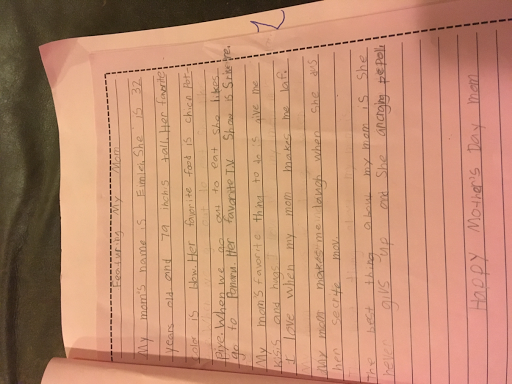 2
Featuring My Mom
My mom's name is She is 32
years old and 79 inchis tall. Her favorite
is Now. Her favorite food is chicn Pot
Piye. When we go out to eat she likes
go to Panara. Her favorite T.V. Show is
My mom's favorite thing to do is give me
kisis and hugs
I love when my mom makes me laf.
My mom makes me laugh when she
her secrete mov
The best thing about my mom is she
never givs up and She
Happy Mother's Day mom